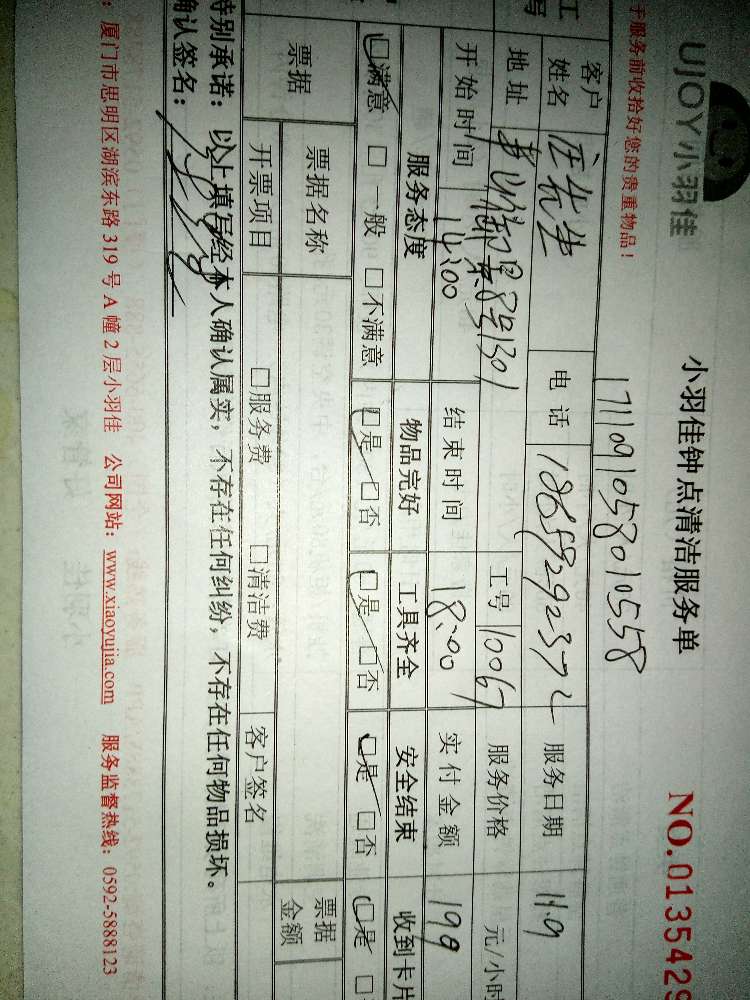 UJOY小羽佳
小羽佳钟点清洁服务单 NO.0135429
于服务前收拾好您的贵重物品！ 1711091058010558
客户姓名 汪先生 电话 18659292372 服务日期 11.9
地址 8号1301 工号 10067 服务价格 元/小时
开始时间 14:00 结束时间 18:00 实付金额 198
服务态度 物品完好 工具齐全 安全结束 收到卡片
☑满意 □一般 □不满意 ☑是 □否 ☑是 □否 ☑是 □否 ☑是 □
票据 票据名称 票据金额
开票项目 □服务费 □清洁费 客户签名
特别承诺：以上填写经本人确认属实，不存在任何纠纷，不存在任何物品损坏。
确认签名：
：厦门市思明区湖滨东路 319 号 A 幢 2 层小羽佳 公司网站：www.xiaoyujia.com 服务监督热线：0592-5888123